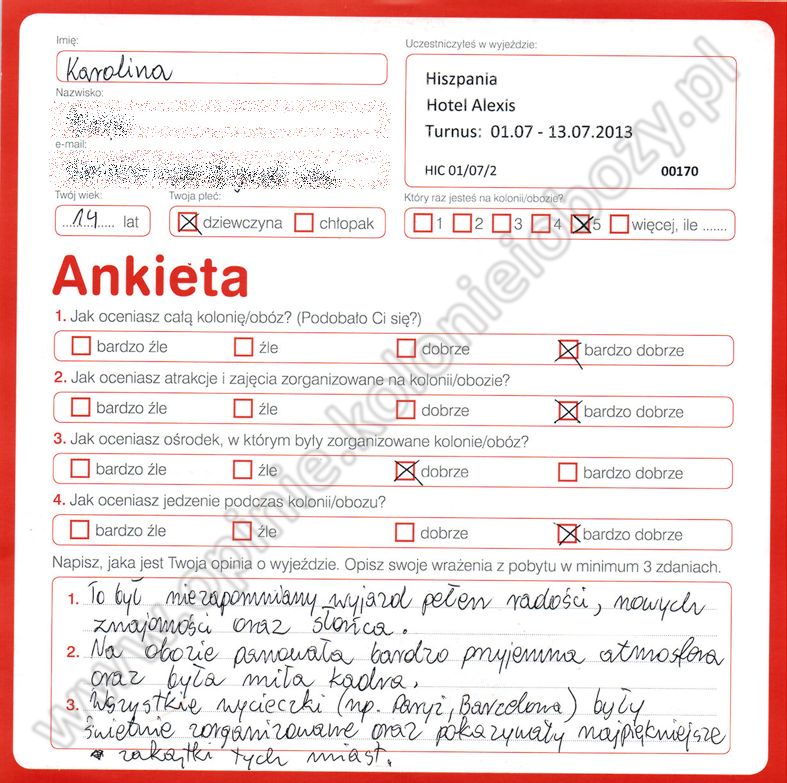 Imię:
Uczestniczyłeś w wyjeździe:
Karolina
Hiszpania
Hotel Alexis
Turnus: 01.07 - 13.07.2013
HIC 01/07/2 00170
Nazwisko:
e-mail:
Twój wiek: Twoja płeć: Który raz jesteś na kolonii/obozie?
14 lat dziewczyna chłopak 1 2 3 4 5 więcej, ile .......
Ankieta
1. Jak oceniasz całą kolonię/obóz? (Podobało Ci się?)
bardzo źle źle dobrze bardzo dobrze
2. Jak oceniasz atrakcje i zajęcia zorganizowane na kolonii/obozie?
bardzo źle źle dobrze bardzo dobrze
3. Jak oceniasz ośrodek, w którym były zorganizowane kolonie/obóz?
bardzo źle źle dobrze bardzo dobrze
4. Jak oceniasz jedzenie podczas kolonii/obozu?
bardzo źle źle dobrze bardzo dobrze
Napisz, jaka jest Twoja opinia o wyjeździe. Opisz swoje wrażenia z pobytu w minimum 3 zdaniach.
1. To był niezapomniany wyjazd pełen radości, nowych
znajomości oraz słońca.
2. Na obozie panowała bardzo przyjemna atmosfera
oraz była miła kadra.
3. Wszystkie wycieczki (np. Paryż, Barcelona) były
świetnie zorganizowane oraz pokazywały najpiękniejsze
zakątki tych miast.
www.opinie.kolonieiobozy.pl